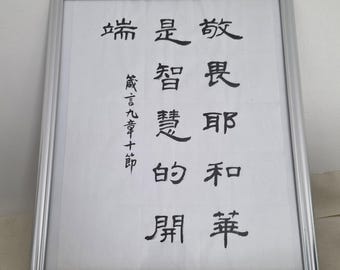 敬畏耶和華
是智慧的開
端
箴言九章十節